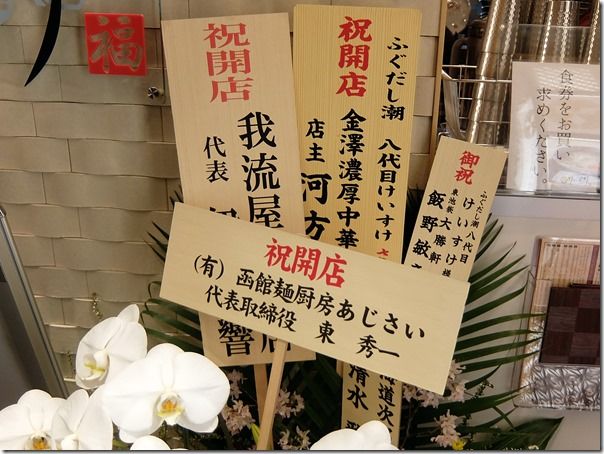 福
祝開店
代表
我流屋
響
祝開店
ふぐだし潮 八代目けいすけさ
金澤濃厚中華
店主 河方
御祝
ふぐだし潮八代目
けいすけ様
東池袋大勝軒
飯野敏
食券をお買い
求めください。
祝開店
(有) 函館麺厨房あじさい
代表取締役 東 秀一
道火
清水